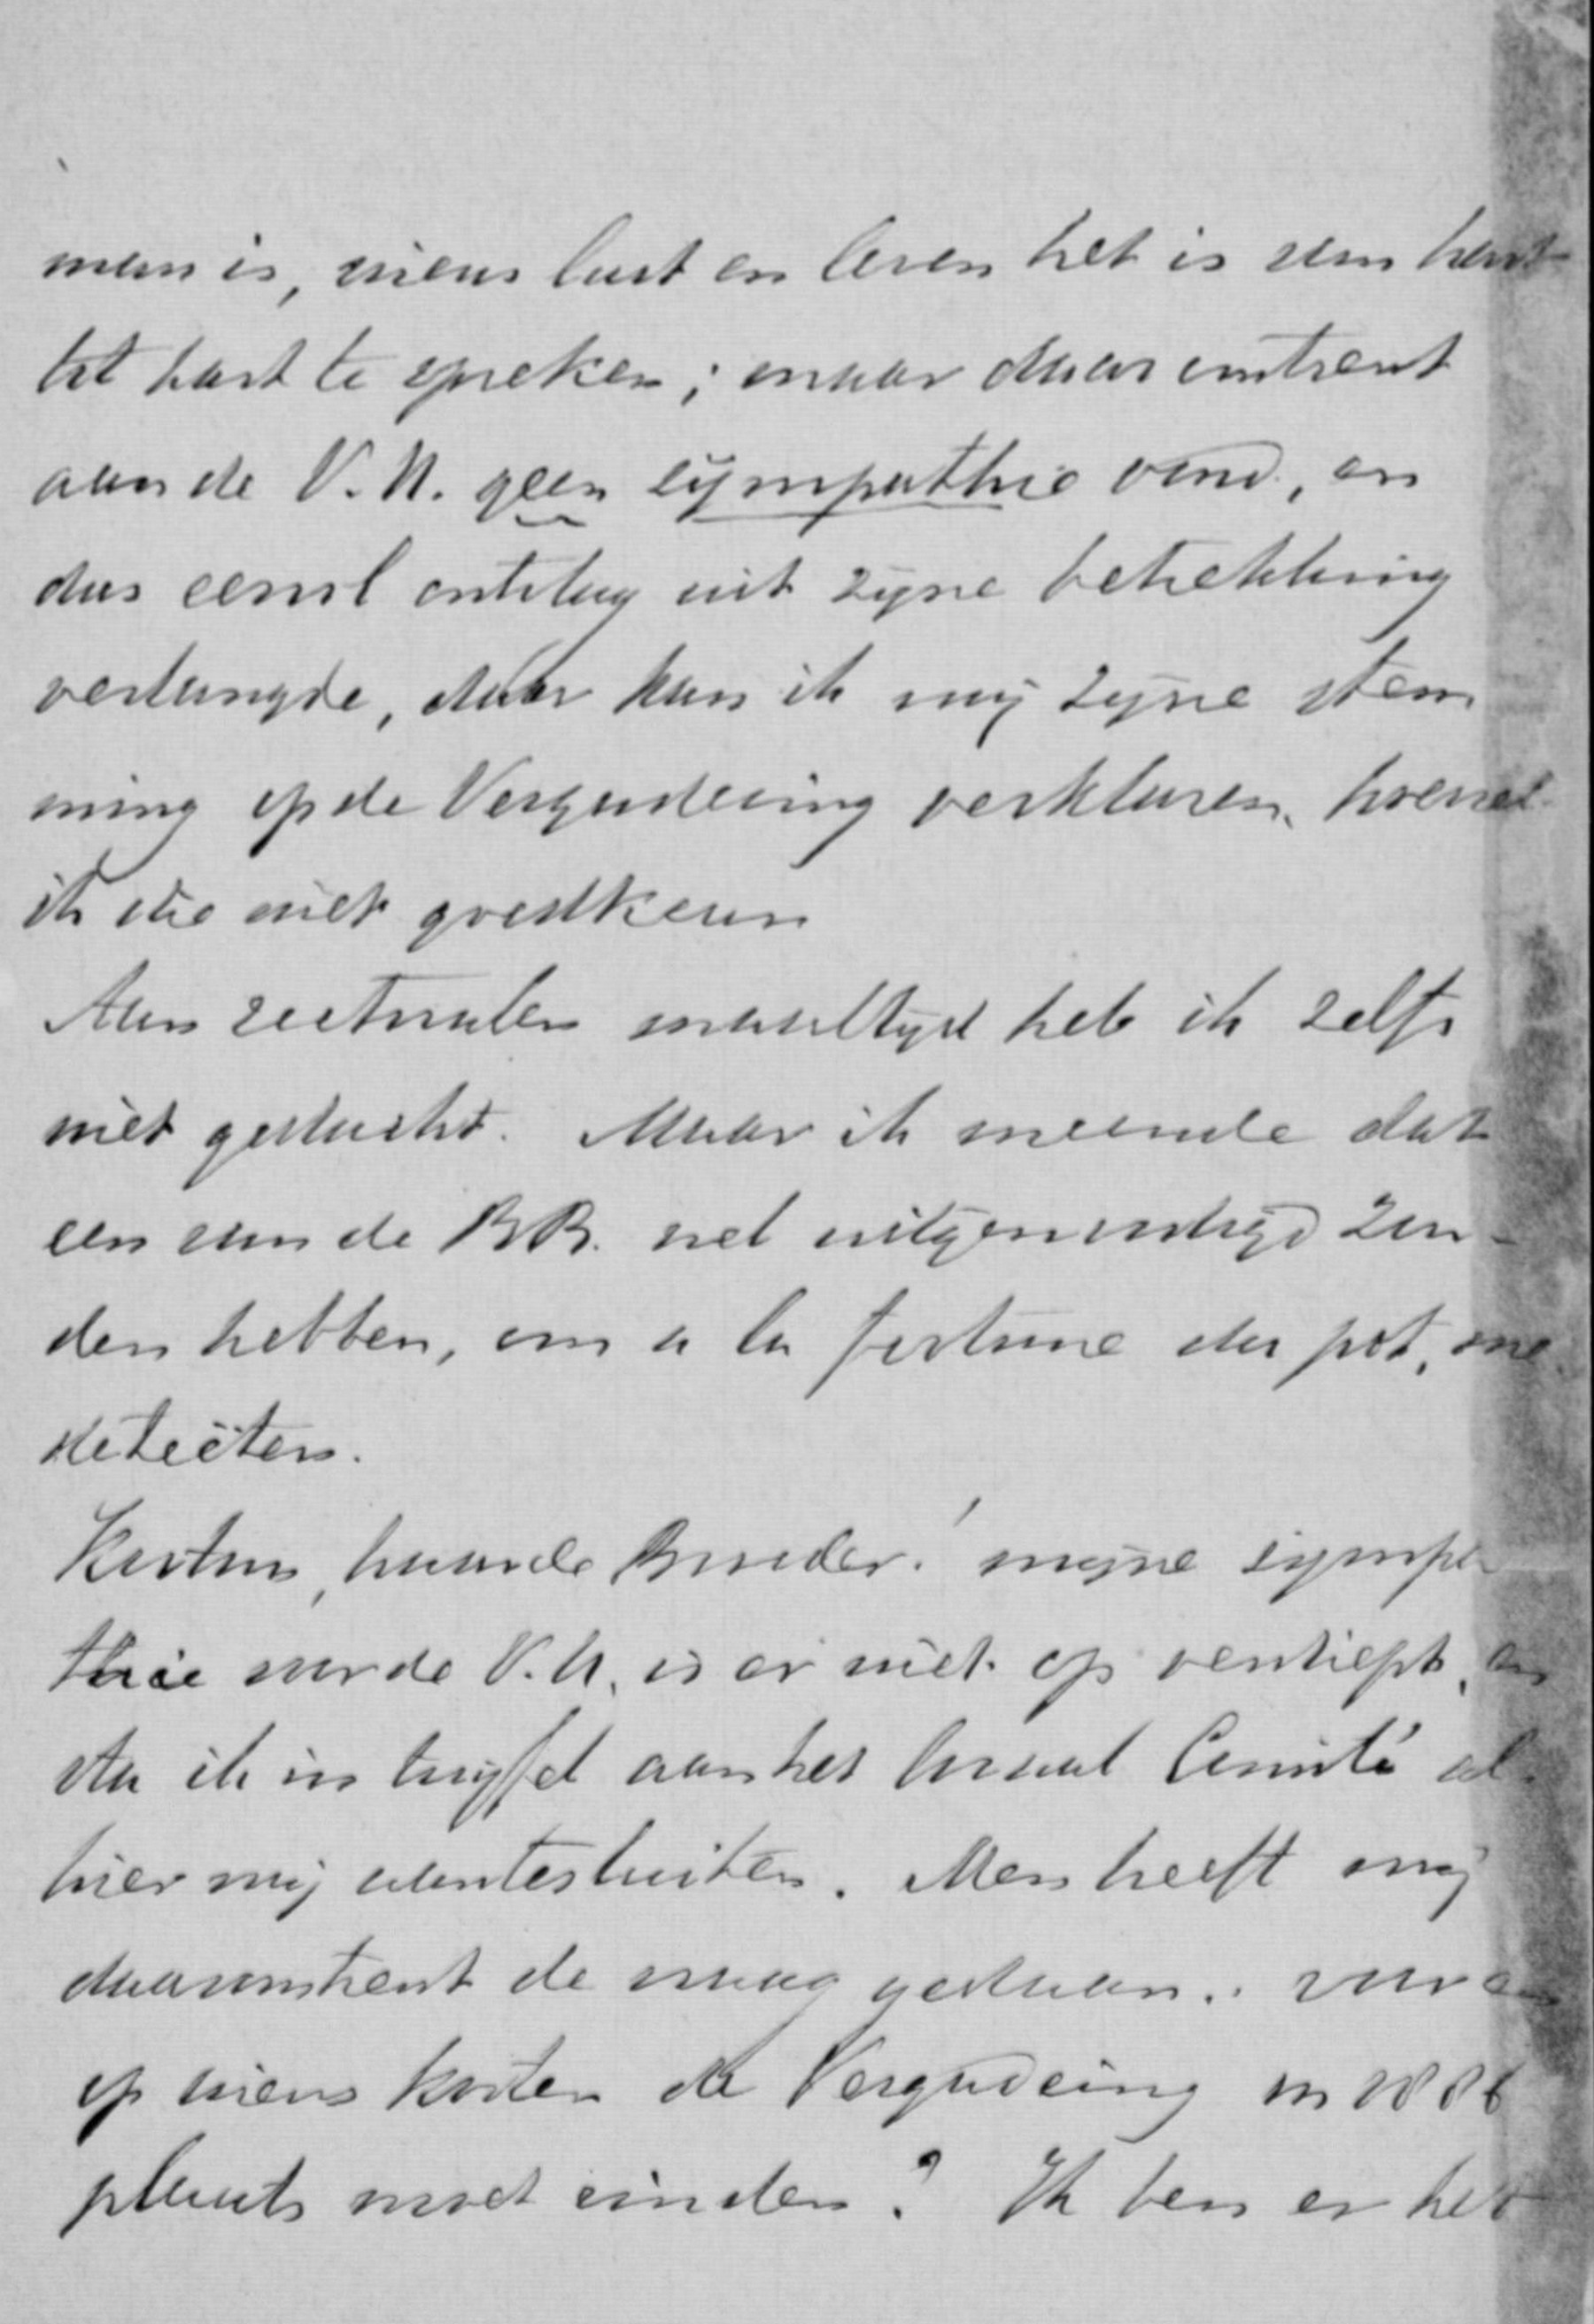 man is, wiens lust en leven het is van hart
tot hart te spreken; maar daaromtrent
aan de V. U. geen sympathie vond, en
dus eervol ontslag uit zijne betrekking
verlangde, daar kan ik mij zijne stem
ming op de Vergadering verklaren, hoewel
ik die niet goedkeur
Aan rectoralen maaltijd heb ik zelfs
niet gedacht. Maar ik meende dat
een van de BB. wel uitgenoodigd zou-
den hebben, om a la fortune du pot, me
de te eten.
Kortom, waarde Broeder! mijne sympa
thie voor de V. U. is er niet op verdiept, en
sta ik in twijfel aan het locaal Comité al
hier mij aan te sluiten. Men heeft mij
daaromtrent de vraag gedaan: voor en
op wiens kosten de Vergadering in 1886
plaats moet vinden? Ik ben er het